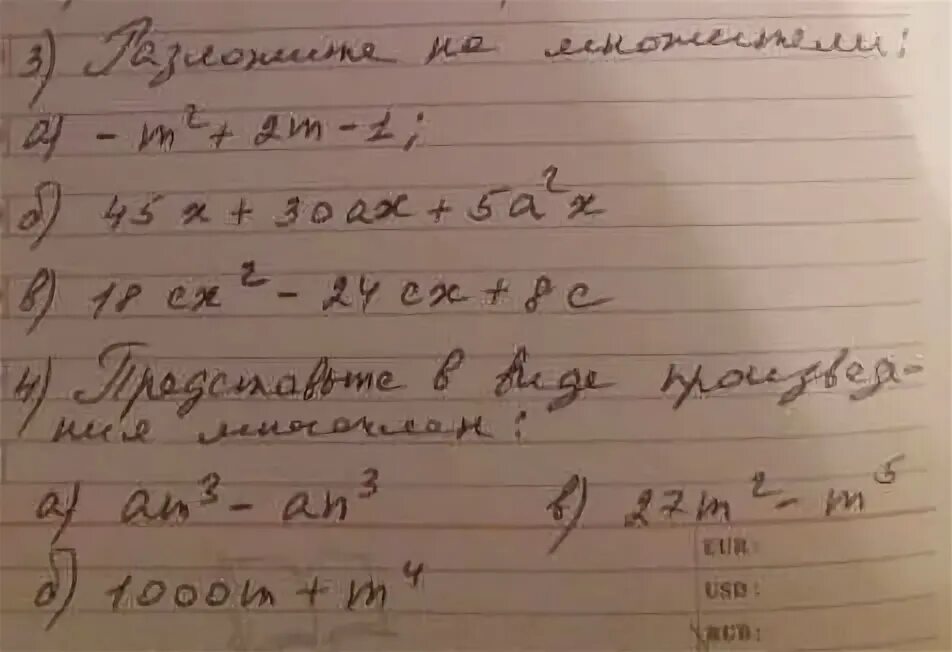 3) Разложите на множители:
а) - m² + 2m - 1;
б) 45x + 30ax + 5a²x
в) 18cx² - 24cx + 8c
4) Представьте в виде произведе-
ния многочлен:
а) am³ - an³ в) 27m² - m⁵
б) 1000m + m⁴
EUR:
USD: